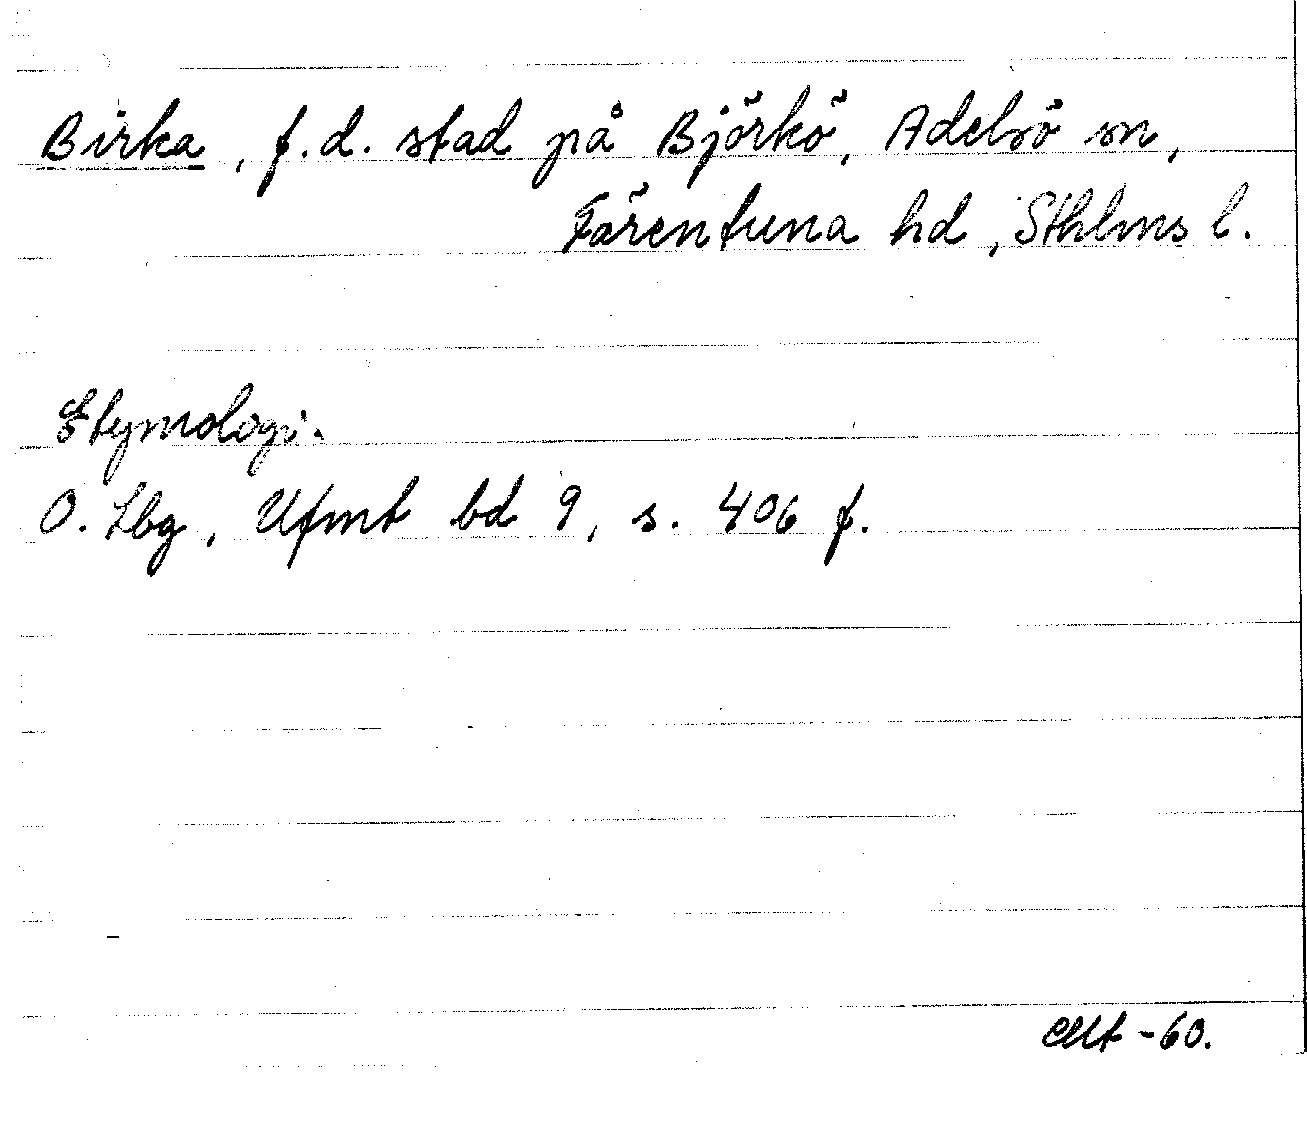 Birka, f.d. stad på Björkö, Adelsö sn,
Färentuna hd, Sthlms l.
Etymologi.
O. Lbg, Ufmt bd 9, s. 406 f.
-60.